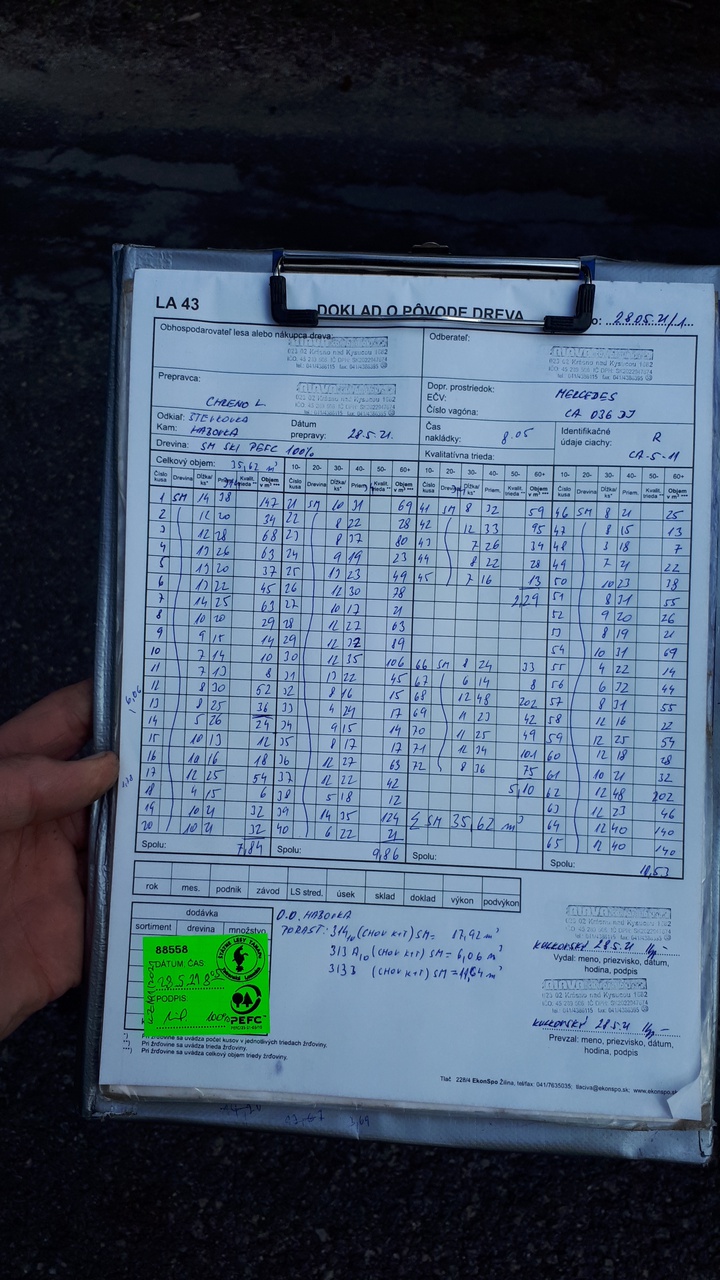 LA 43
DOKLAD O PÔVODE DREVA
28.05.21/1
Obhospodarovateľ lesa alebo nákupca dreva:
023 02 Krásno nad Kysucou 1682
Odberateľ:
Prepravca:
CHRENO L.
Dopr. prostriedok: MERCEDES
EČV:
Číslo vagóna: CA 036 JJ
Odkiaľ:
Kam: HABOVKA
Dátum prepravy: 28.5.21.
Čas nakládky: 8.05
Identifikačné údaje ciachy: R
CA-5-11
Drevina: SM SKI PEFC 100%
Kvalitatívna trieda:
Celkový objem: 35,62 m³
10- 20- 30- 40- 50- 60+ 10- 20- 30- 40- 50- 60+
Číslo kusa Drevina Dĺžka/ks* Priem. Kvalit. trieda ** Objem v m³ ***
1 SM 14 38 147 21 SM 10 31 69 41 SM 8 32 59 46 SM 8 21 25
2 12 20 34 22 8 22 28 42 12 33 95 47 8 15 13
3 12 28 68 23 8 37 80 43 7 26 34 48 3 18 7
4 13 26 63 24 9 19 23 44 8 22 28 49 7 21 22
5 13 20 37 25 13 23 49 45 7 16 13 50 10 23 38
6 13 22 45 26 12 30 78 2,29 51 8 31 55
7 14 25 63 27 10 17 21 52 9 20 26
8 10 20 29 28 12 27 63 53 8 19 21
9 9 15 14 29 12 32 89 54 10 31 69
10 7 14 10 30 12 35 106 66 SM 8 24 33 55 4 22 14
11 7 13 8 31 13 22 45 67 6 14 8 56 6 32 44
12 8 30 52 32 8 16 15 68 12 48 202 57 8 31 55
13 8 25 36 33 4 24 17 69 11 23 42 58 12 16 22
14 5 26 24 34 9 15 14 70 11 25 49 59 12 25 54
15 10 13 12 35 8 17 17 71 12 34 101 60 12 18 28
16 10 16 18 36 12 27 63 72 8 36 75 61 10 21 32
17 12 25 54 37 12 22 42 5,10 62 12 48 202
18 4 15 6 38 5 18 12 63 12 23 46
19 10 21 32 39 14 35 124 Σ SM 35,62 m³ 64 12 40 140
20 10 21 32 40 6 22 21 65 12 40 140
Spolu: 7,84 Spolu: 9,86 Spolu: Spolu: 10,53
rok mes. podnik závod LS stred. úsek sklad doklad výkon podvýkon
dodávka
sortiment drevina množstvo
O.O. HABOVKA
PORAST: 314 10 (CHOV K+T) SM = 17,92 m³
313 A10 (CHOV K+T) SM = 6,06 m³
313 B (CHOV K+T) SM = 11,64 m³
28.5.21
Vydal: meno, priezvisko, dátum,
hodina, podpis
28.5.21
Prevzal: meno, priezvisko, dátum,
hodina, podpis
88558
DÁTUM: ČAS
28.5.21 8:05
PODPIS
100% PEFC
*) Pri žrďovine sa uvádza počet kusov v jednotlivých triedach žrďoviny.
**) Pri žrďovine sa uvádza trieda žrďoviny.
***) Pri žrďovine sa uvádza celkový objem triedy žrďoviny.
Tlač 228/4 EkonSpo Žilina, tel/fax: 041/7635035; tlaciva@ekonspo.sk; www.ekonspo.sk